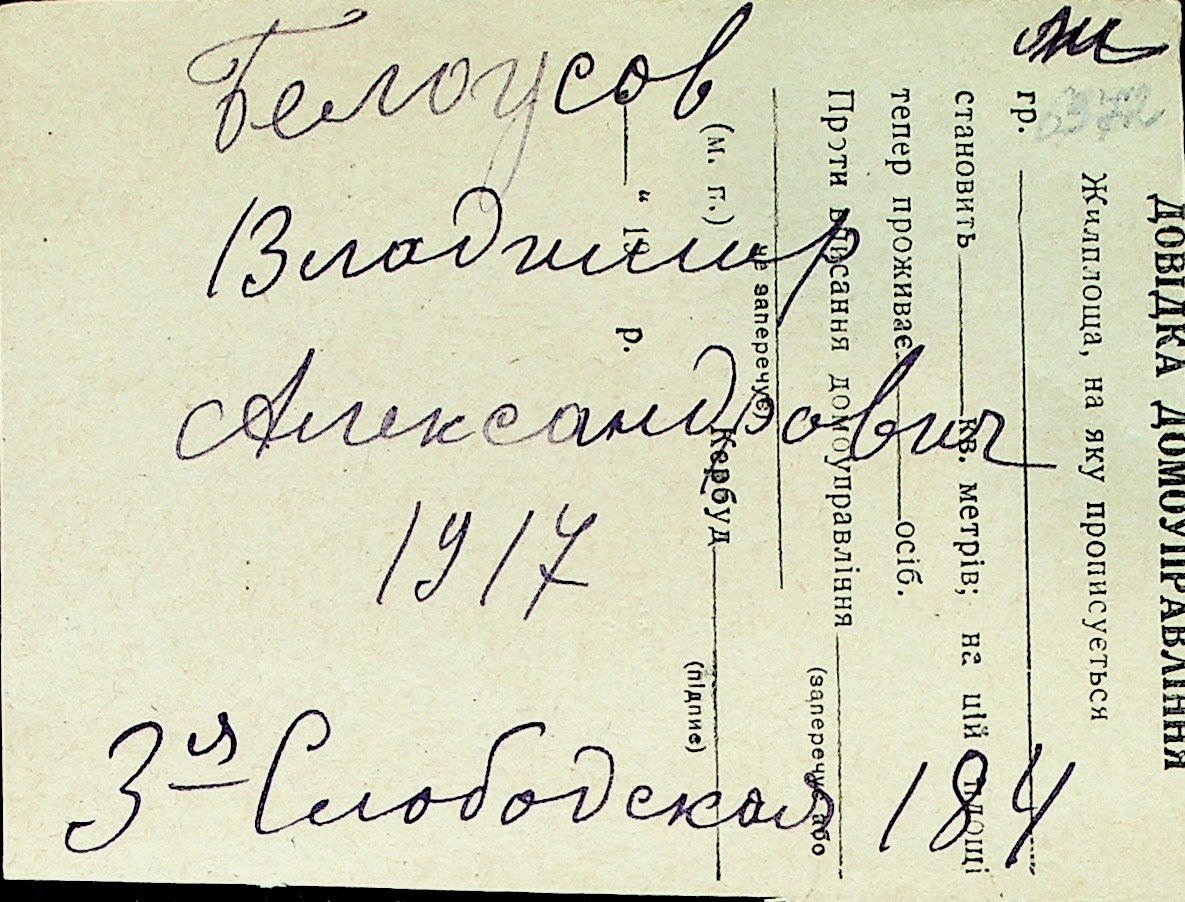 Белоусов
Владимир
Александрович
1917
3ья Слободская 184
ДОВІДКА ДОМОУПРАВЛІННЯ
Жилплоща, на яку прописується
гр.
становить кв. метрів; на цій площі
тепер проживає осіб.
Проти вписання домоуправління
(заперечує або
не заперечує)
(м. п.) Кербуд
(підпис)
“ 19 р.